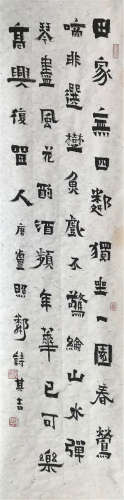 田家無四鄰獨坐一園春鶯
啼非選樹魚戲不驚綸山水彈
琴盡風花酌酒頻年華已可樂
高興復留人 唐盧照鄰詩 其吉